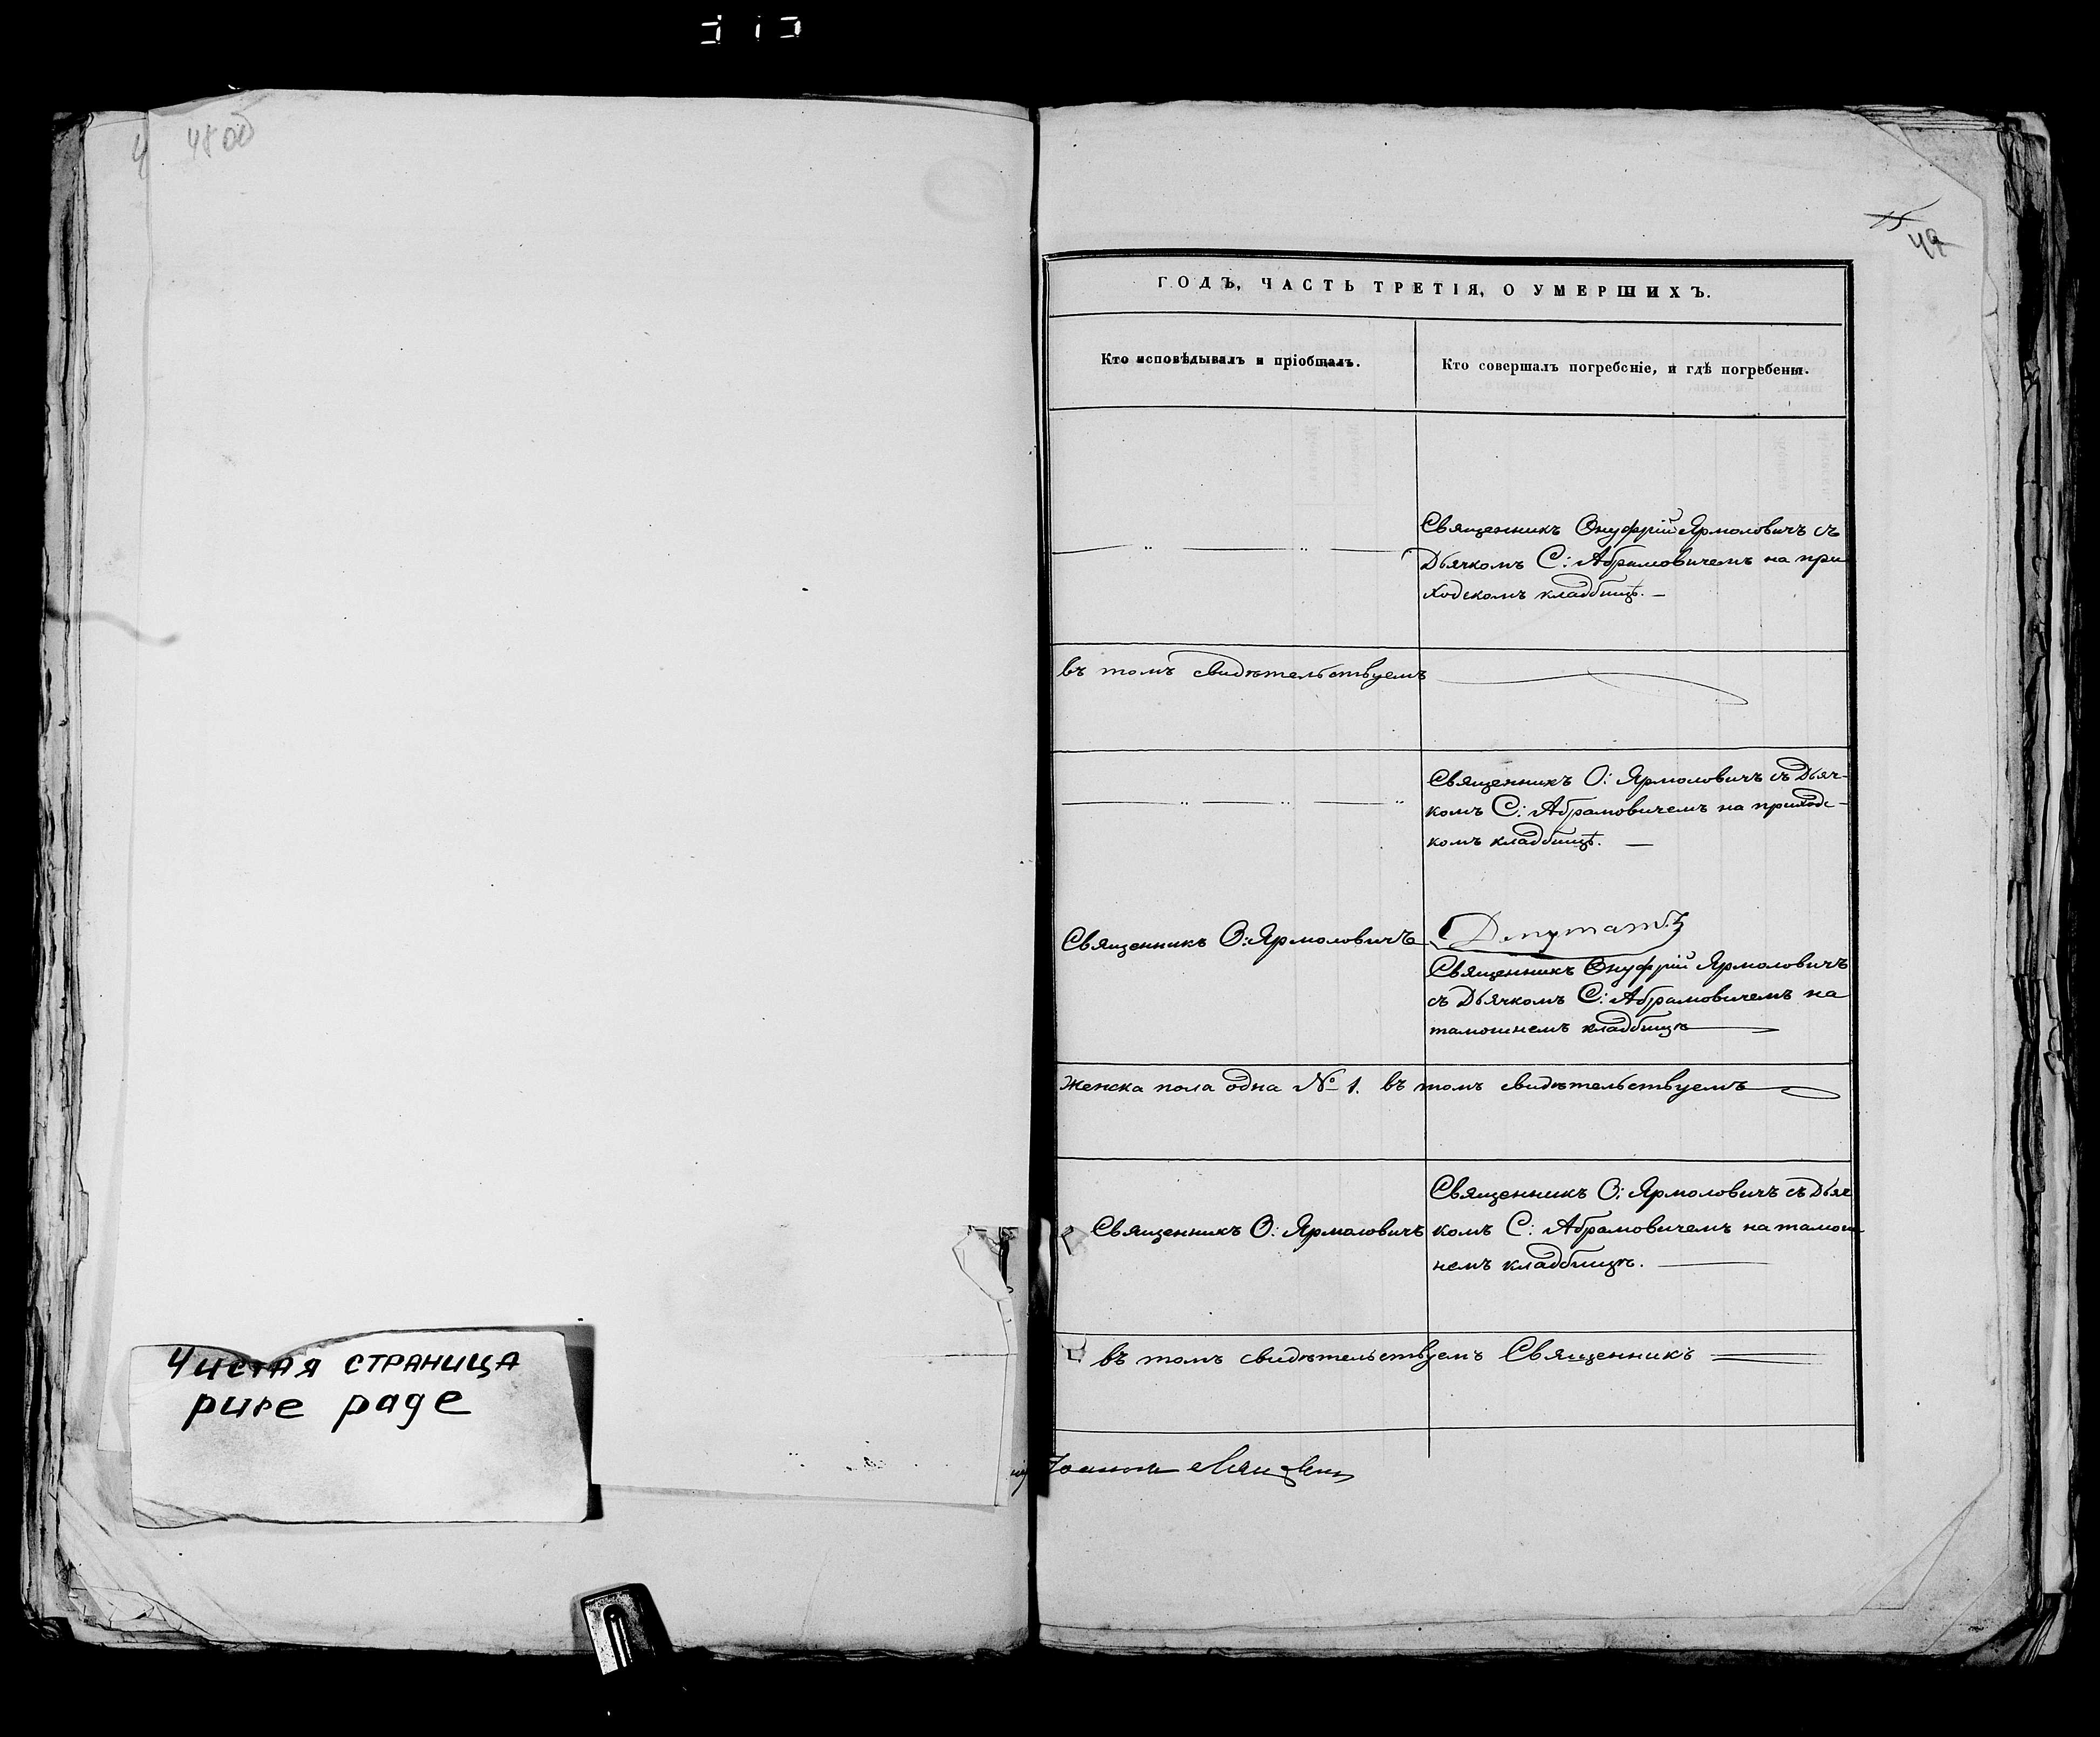 48об
Чистая страница
pure page
49
ГОДЪ, ЧАСТЬ ТРЕТІЯ, О УМЕРШИХЪ.
Кто исповѣдывалъ и пріобщалъ.
Кто совершалъ погребеніе, и гдѣ погребены.
Священникъ Онуфрій Ярмоловичъ съ
Дьячкомъ С: Абрамовичемъ на при
ходскомъ кладбищѣ. —
въ томъ свидѣтельствуемъ
Священникъ О: Ярмоловичъ съ Дьяч-
комъ С: Абрамовичемъ на приходс-
комъ кладбищѣ. —
Священникъ О: Ярмоловичъ
Депутатъ
Священникъ Онуфрій Ярмоловичъ
съ Дьячкомъ С: Абрамовичемъ на
тамошнемъ кладбищѣ
женска пола одна № 1. въ томъ свидѣтельствуемъ
Священникъ О: Ярмоловичъ
Священникъ О: Ярмоловичъ съ Дьяч
комъ С: Абрамовичемъ на тамош
немъ кладбищѣ.
въ томъ свидѣтельствуемъ Священникъ